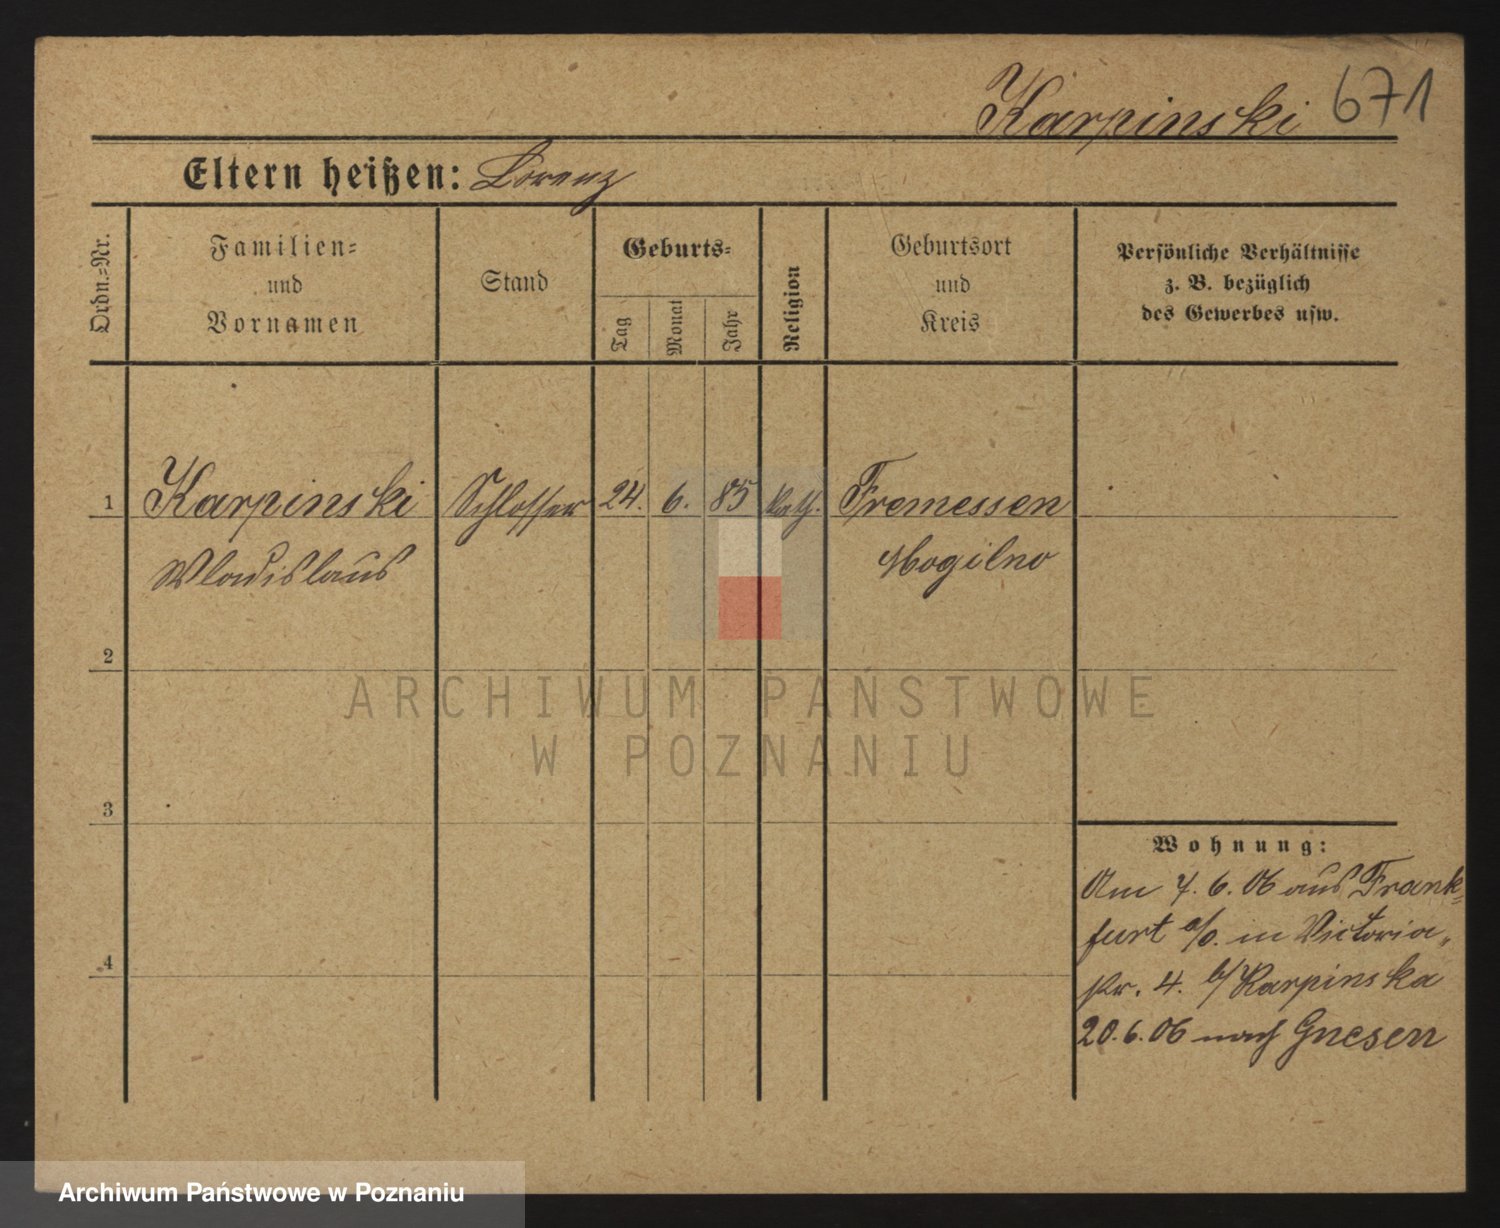 Karpinski 671
Eltern heißen: Lorenz
Ordn.=Nr.
Familien=
und
Vornamen
Stand
Geburts=
Tag
Monat
Jahr
Religion
Geburtsort
und
Kreis
Persönliche Verhältnisse
z. B. bezüglich
des Gewerbes usw.
1 Karpinski Schlosser 24. 6. 85 kath. Tremessen
Wladislaus Mogilno
2
ARCHIWUM PAŃSTWOWE
W POZNANIU
3
Wohnung:
Am 7. 6. 06 aus Frank=
furt a/O. in Victoria„
str. 4. b/ Karpinska
4
20. 6. 06 nach Gnesen
Archiwum Państwowe w Poznaniu